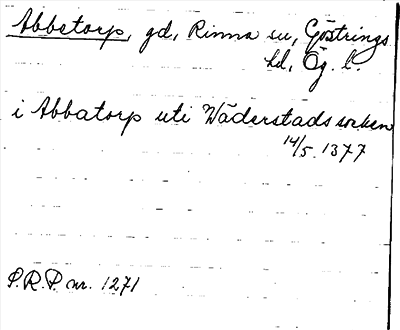 Abbetorp, gd, Rinna sn, Göstrings
hd, Ög. l.
i Abbatorp uti Wäderstads socken
14/5 1377
P.R.P. nr. 1271